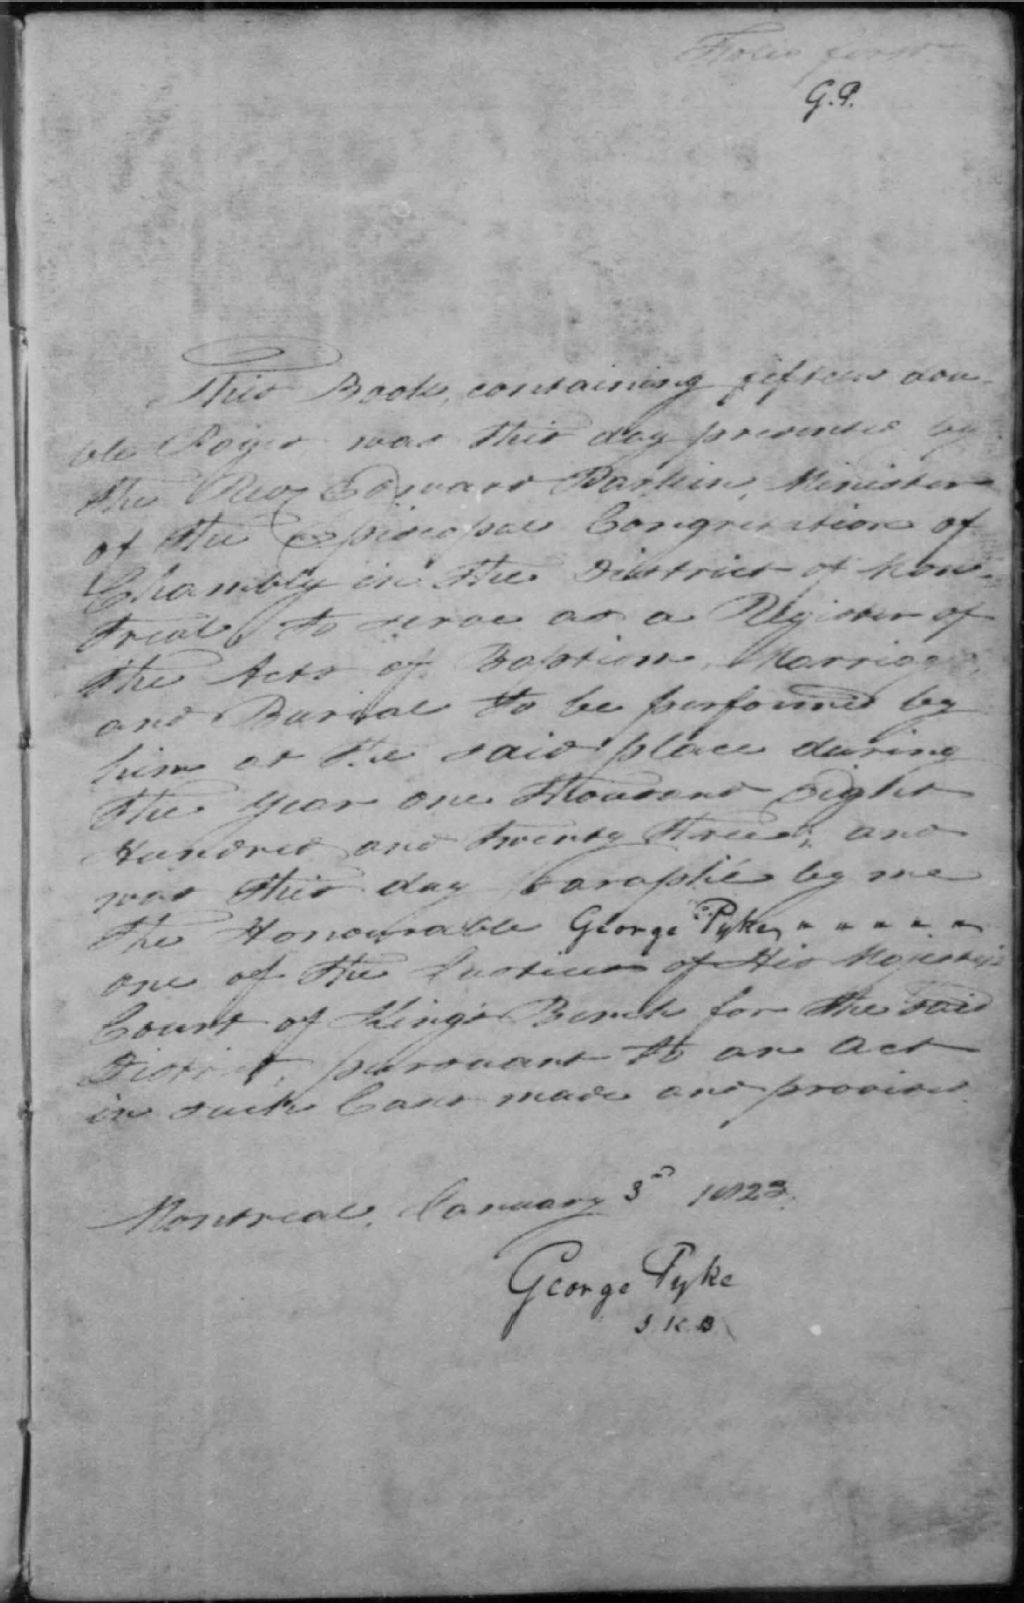 Folio first
G.P.
This Book, containing fifteen dou-
ble Pages was this day presented by
the Revd Edward Parkin, Minister
of the Episcopal Congregation of
Chambly in the District of Mon-
treal, to serve as a Register of
the Acts of Baptism, Marriage
and Burial to be performed by
him at the said place during
the year one thousand Eight
Hundred and twenty three; and
was this day paraphé by me
the Honourable George Pyke, - - - - -
one of the Justices of His Majesty's
Court of King's Bench for the said
District, pursuant to an Act
in such Case made and provided.
Montreal, January 3d 1823.
George Pyke
J.K.B